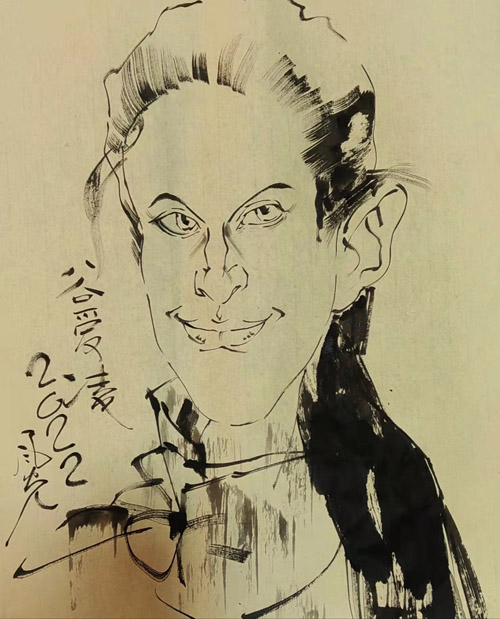 谷爱凌
2022